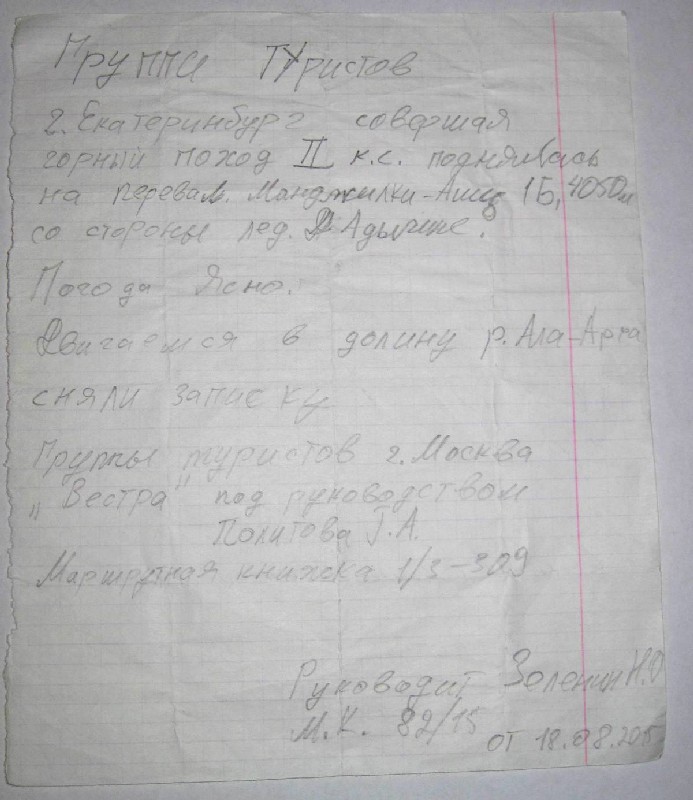 Группа туристов
г. Екатеринбург совершая
горный поход II к.с. поднялась
на перевал. Манджилки-Ашу 1Б, 4050м
со стороны лед. Адыгине.
Погода Ясно.
Двигаемся в долину р. Ала-Арча
сняли записку
Группы туристов г. Москва
"Вестра" под руководством
Политова Г.А.
Маршрутная книжка 1/3-309
Руководит Зеленин Н.О
М.К. 82/15
от 18.08.2015